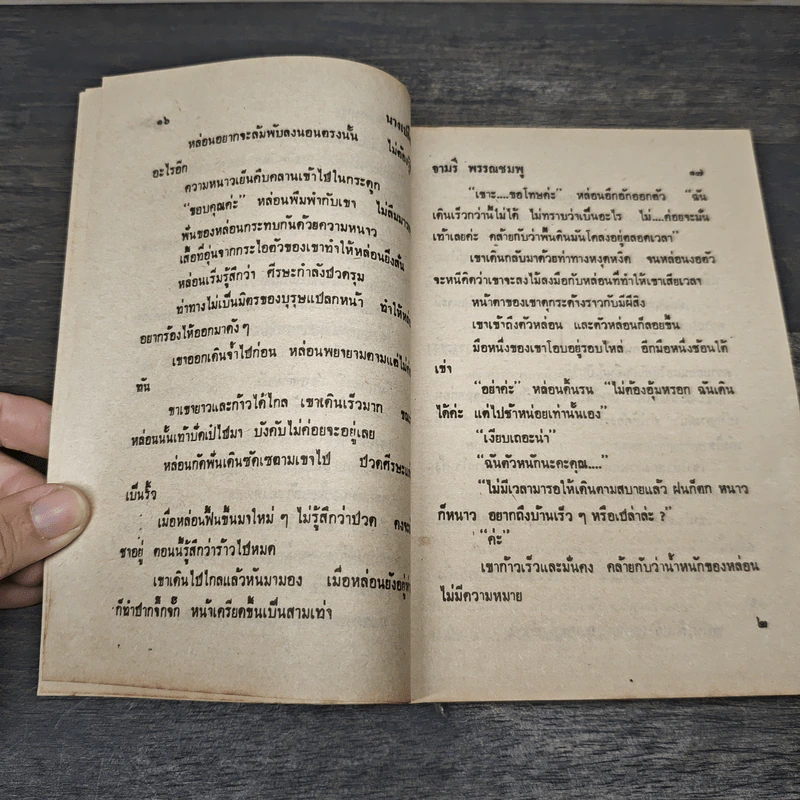 ๑๖
หล่อนอยากจะล้มพับลงนอนตรงนั้น ไม่ต้อง
อะไรอีก
ความหนาวเย็นคืบคลานเข้าไปในกระดูก
“ขอบคุณค่ะ” หล่อนพึมพำกับเขา ไม่ลืม
ฟันของหล่อนกระทบกันด้วยความหนาว
เสื้อที่อุ่นจากกระไอตัวของเขาทำให้หล่อนยิ่งสั่น
หล่อนเริ่มรู้สึกว่า ศีรษะกำลังปวดรุม
ท่าทางไม่เป็นมิตรของบุรุษแปลกหน้า ทำให้
อยากร้องไห้ออกมาดัง ๆ
เขาออกเดินจ้ำไปก่อน หล่อนพยายามตามแต่ไม่
ทัน
ขาเขายาวและก้าวได้ไกล เขาเดินเร็วมาก
หล่อนนั้นเท้าปัดเป๋ไปมา บังคับไม่ค่อยจะอยู่เลย
หล่อนกัดฟันเดินซัดเซตามเขาไป ปวดศีรษะ
เป็นริ้ว
เมื่อหล่อนฟื้นขึ้นมาใหม่ ๆ ไม่รู้สึกว่าปวด คง
ชาอยู่ ตอนนี้รู้สึกว่าร้าวไปหมด
เขาเดินไปไกลแล้วหันมามอง เมื่อหล่อนยังอยู่
ก็ทำปากจิ๊กจั๊ก หน้าเครียดขึ้นเป็นสามเท่า
จามรี พรรณชมพู ๑๗
“เขาะ....ขอโทษค่ะ” หล่อนอึกอักออกตัว “ฉัน
เดินเร็วกว่านี้ไม่ได้ ไม่ทราบว่าเป็นอะไร ไม่....ค่อยจะมั่น
เท้าเลยค่ะ คล้ายกับว่าพื้นดินมันโคลงอยู่ตลอดเวลา”
เขาเดินกลับมาด้วยท่าทางหงุดหงิด จนหล่อนงอตัว
จะหนีคิดว่าเขาจะลงไม้ลงมือกับหล่อนที่ทำให้เขาเสียเวลา
หน้าตาของเขาดุกระด้างราวกับมีผีสิง
เขาเข้าถึงตัวหล่อน และตัวหล่อนก็ลอยขึ้น
มือหนึ่งของเขาโอบอยู่รอบไหล่ อีกมือหนึ่งช้อนใต้
เข่า
“อย่าค่ะ” หล่อนดิ้นรน “ไม่ต้องอุ้มหรอก ฉันเดิน
ได้ค่ะ แต่ไปช้าหน่อยเท่านั้นเอง”
“เงียบเถอะน่า”
“ฉันตัวหนักนะคะคุณ....”
“ไม่มีเวลามารอให้เดินตามสบายแล้ว ฝนก็ตก หนาว
ก็หนาว อยากถึงบ้านเร็ว ๆ หรือเปล่าล่ะ ?”
“ค่ะ”
เขาก้าวเร็วและมั่นคง คล้ายกับว่าน้ำหนักของหล่อน
ไม่มีความหมาย
๒